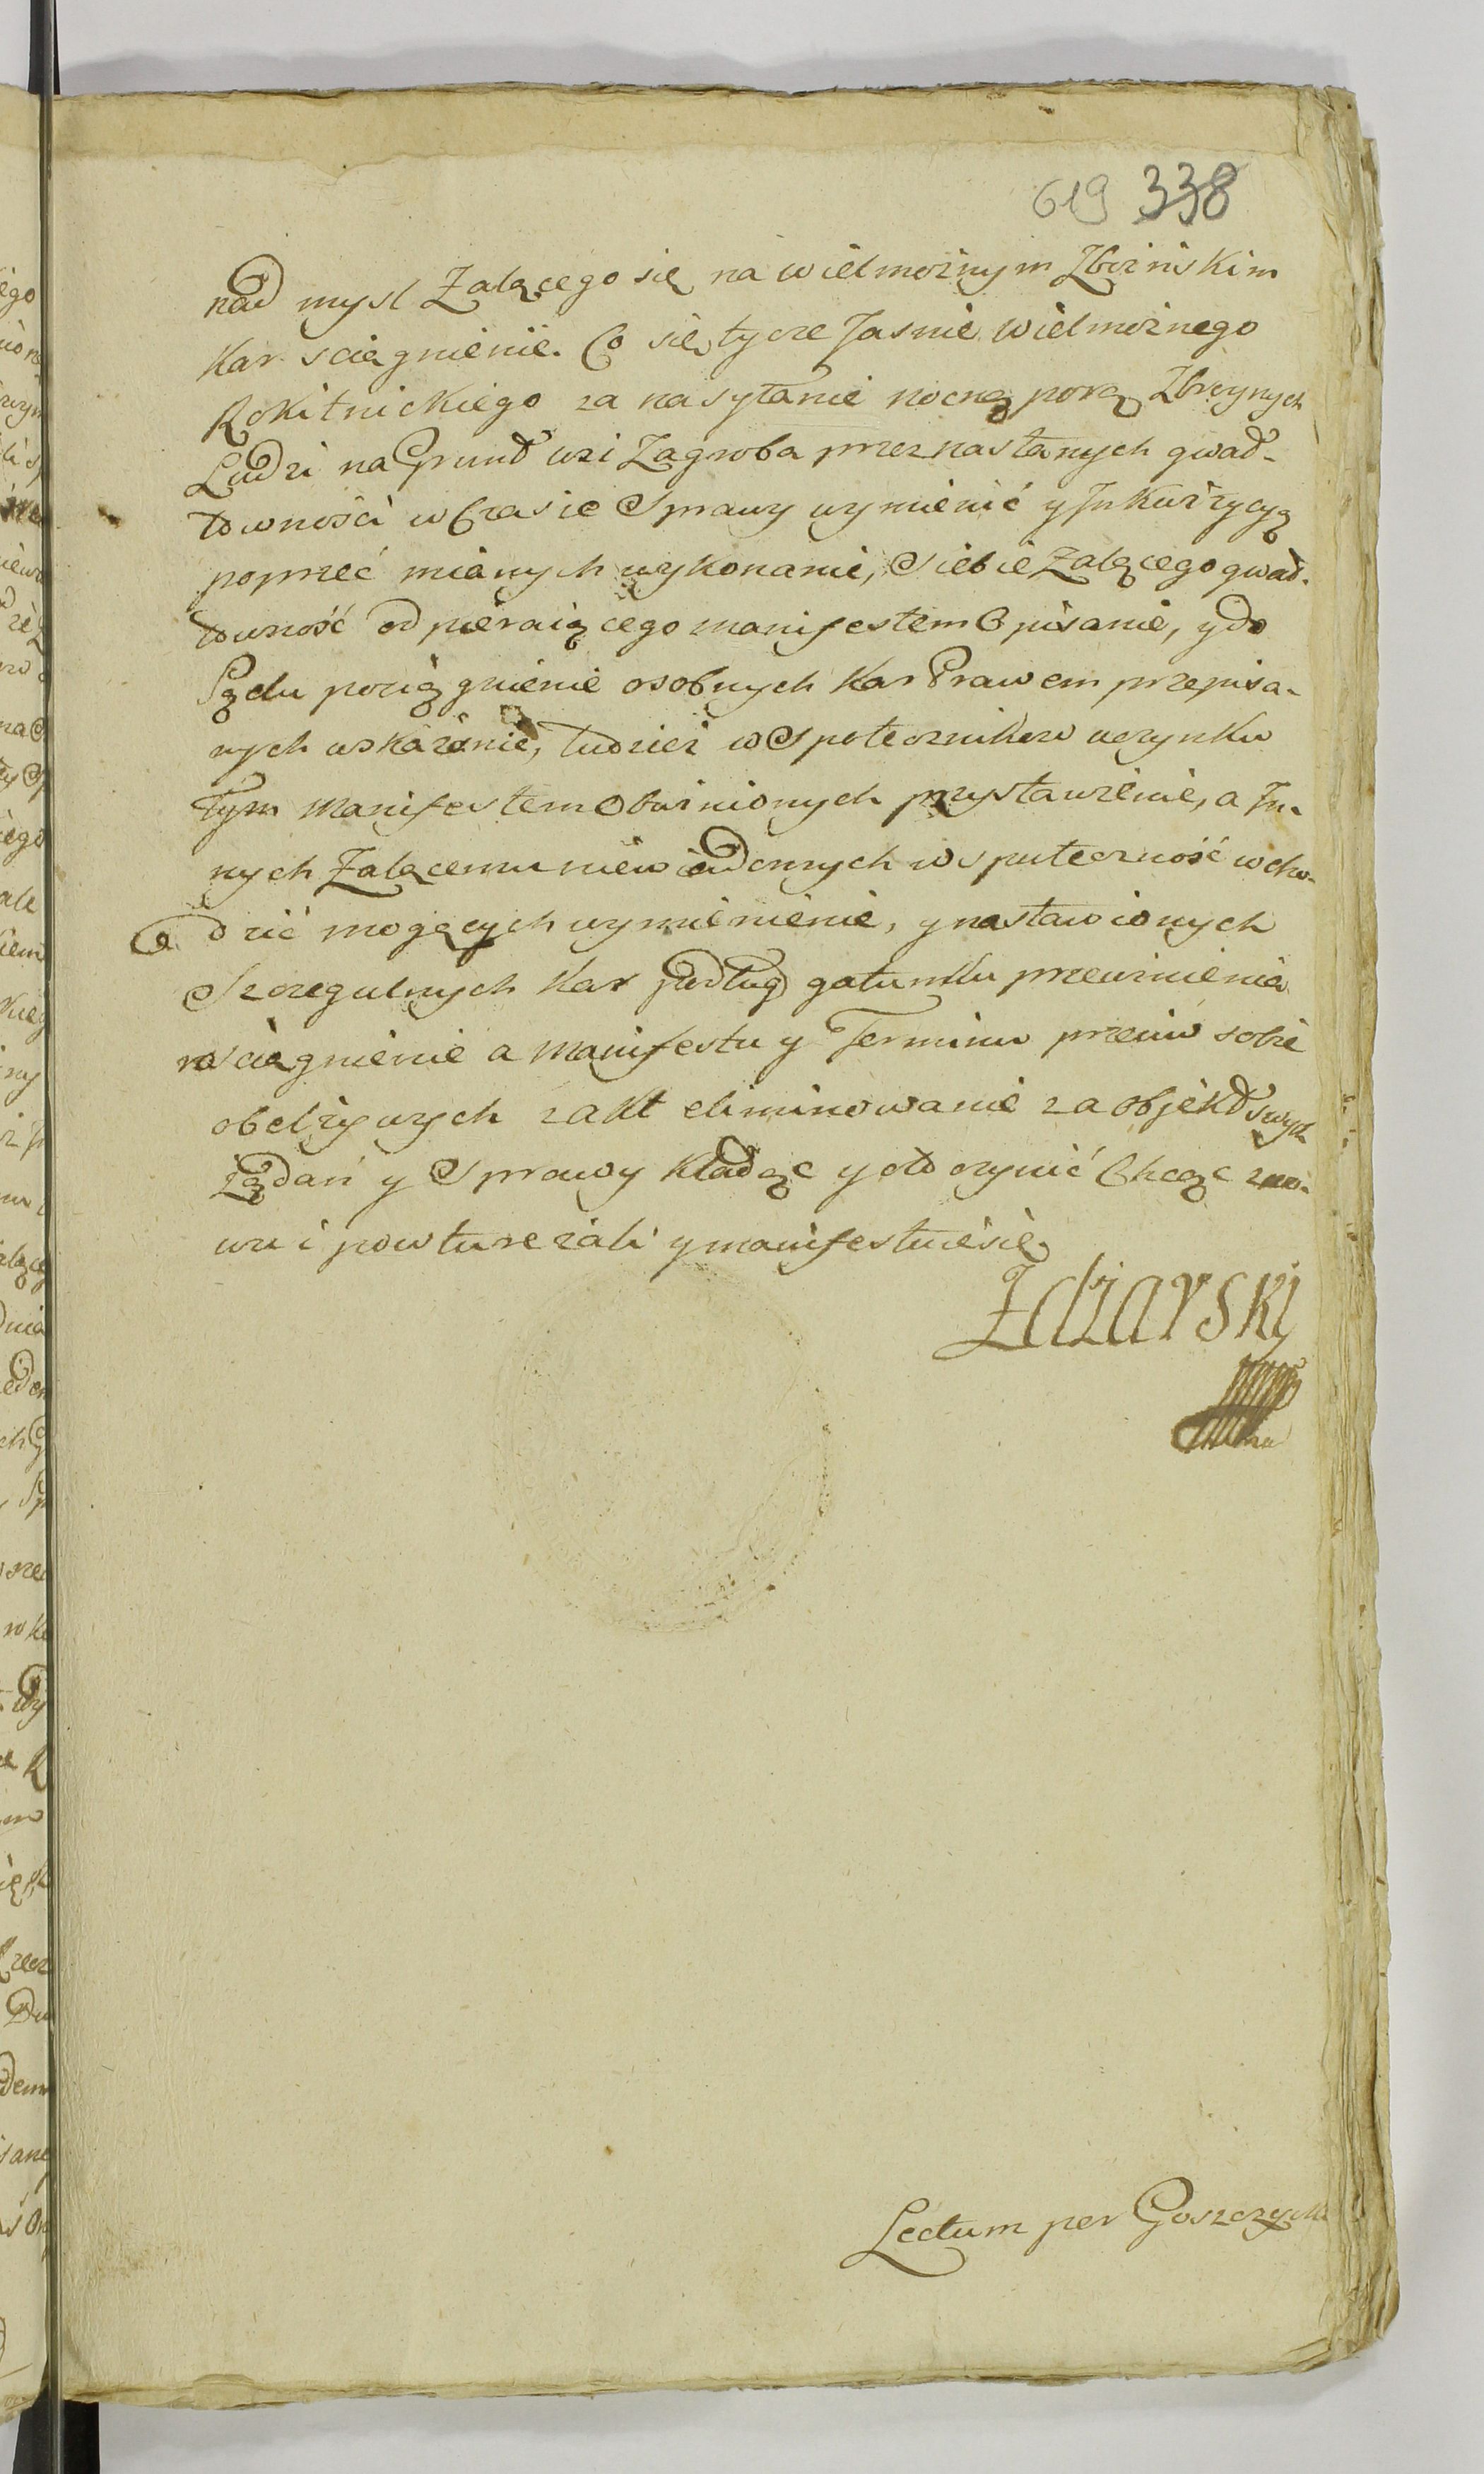 619 338
nad mysl Żalącego się na wielmożnym Zbożnskim
Kar sciągnienie. Co się tycze Jasnie wielmożnego
Rokitnickiego za nasyłanie nocną porą Zbroynych
Ludzi na Grund wsi Zagroba przez nasłanych gwad-
townosci w Czasie Sprawy wymienić y Inkwizycyą
poprzeć mianych wykonanie, Siebie Żalącego gwad-
towność odpieraiącego manifestem Opisanie, y do
Sądu pociągnienie osobnych Kar Prawem przepisa-
nych wskazanie, tudzież wspołeczników uczynku
Tym Manifestem Obwinionych przystawienie, a In-
nych Żalącemu niewiadomych wspułeczność wcho-
dzić mogących wymienienie, y nastawionych
Szczegulnych Kar podług gatunku przewinienia
rosciągnienie a Manifestu y Terminu przeciw sobie
obelżywych z akt eliminowanie za objekd swych
żądań y Sprawy Kładąc y to czynić Chcąc zno-
wu i powturę żali y manifestuie się
Zdżarski
Lectum per Goszczycki